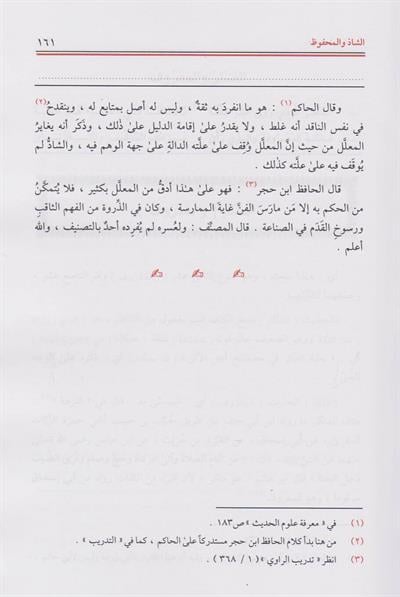 الشاذ والمحفوظ ١٦١
وقال الحاكم(١) : هو ما انفردَ به ثقةٌ ، وليس له أصل بمتابع له ، وينقدِحُ(٢)
في نفس الناقد أنه غلط ، ولا يقدرُ علىٰ إقامة الدليل علىٰ ذٰلك ، وذَكَر أنه يغايرُ
المعلَّل من حيث إنَّ المعلَّل وُقف علىٰ علَّته الدالةِ علىٰ جهة الوهم فيه ، والشاذُّ لم
يُوقَف فيه علىٰ علَّته كذلك .
قال الحافظ ابن حجر(٣) : فهو علىٰ هٰذا أدقُّ من المعلَّل بكثير ، فلا يُتمكَّنُ
من الحكم به إلا مَن مارَسَ الفنَّ غايةَ الممارسة ، وكان في الذِّروة من الفهم الثاقبِ
ورسوخِ القَدَم في الصناعة . قال المصنِّف : ولعُسره لم يُفرِده أحدٌ بالتصنيف ، والله
أعلم .
(١) في « معرفة علوم الحديث » ص١٨٣ .
(٢) من هنا بدأ كلام الحافظ ابن حجر مستدركاً علىٰ الحاكم ، كما في « التدريب » .
(٣) انظر « تدريب الراوي » ( ١ / ٣٦٨ ) .